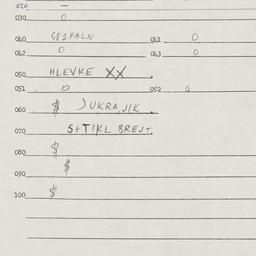 020 —
030 O
040 G81FALN 041 O
042 O 043 O
050 HLEVKE XX
051 O 052 G
060 $ )UKRAJIK
070 S+TIKL BREJT.
080 $
090 $
100 $